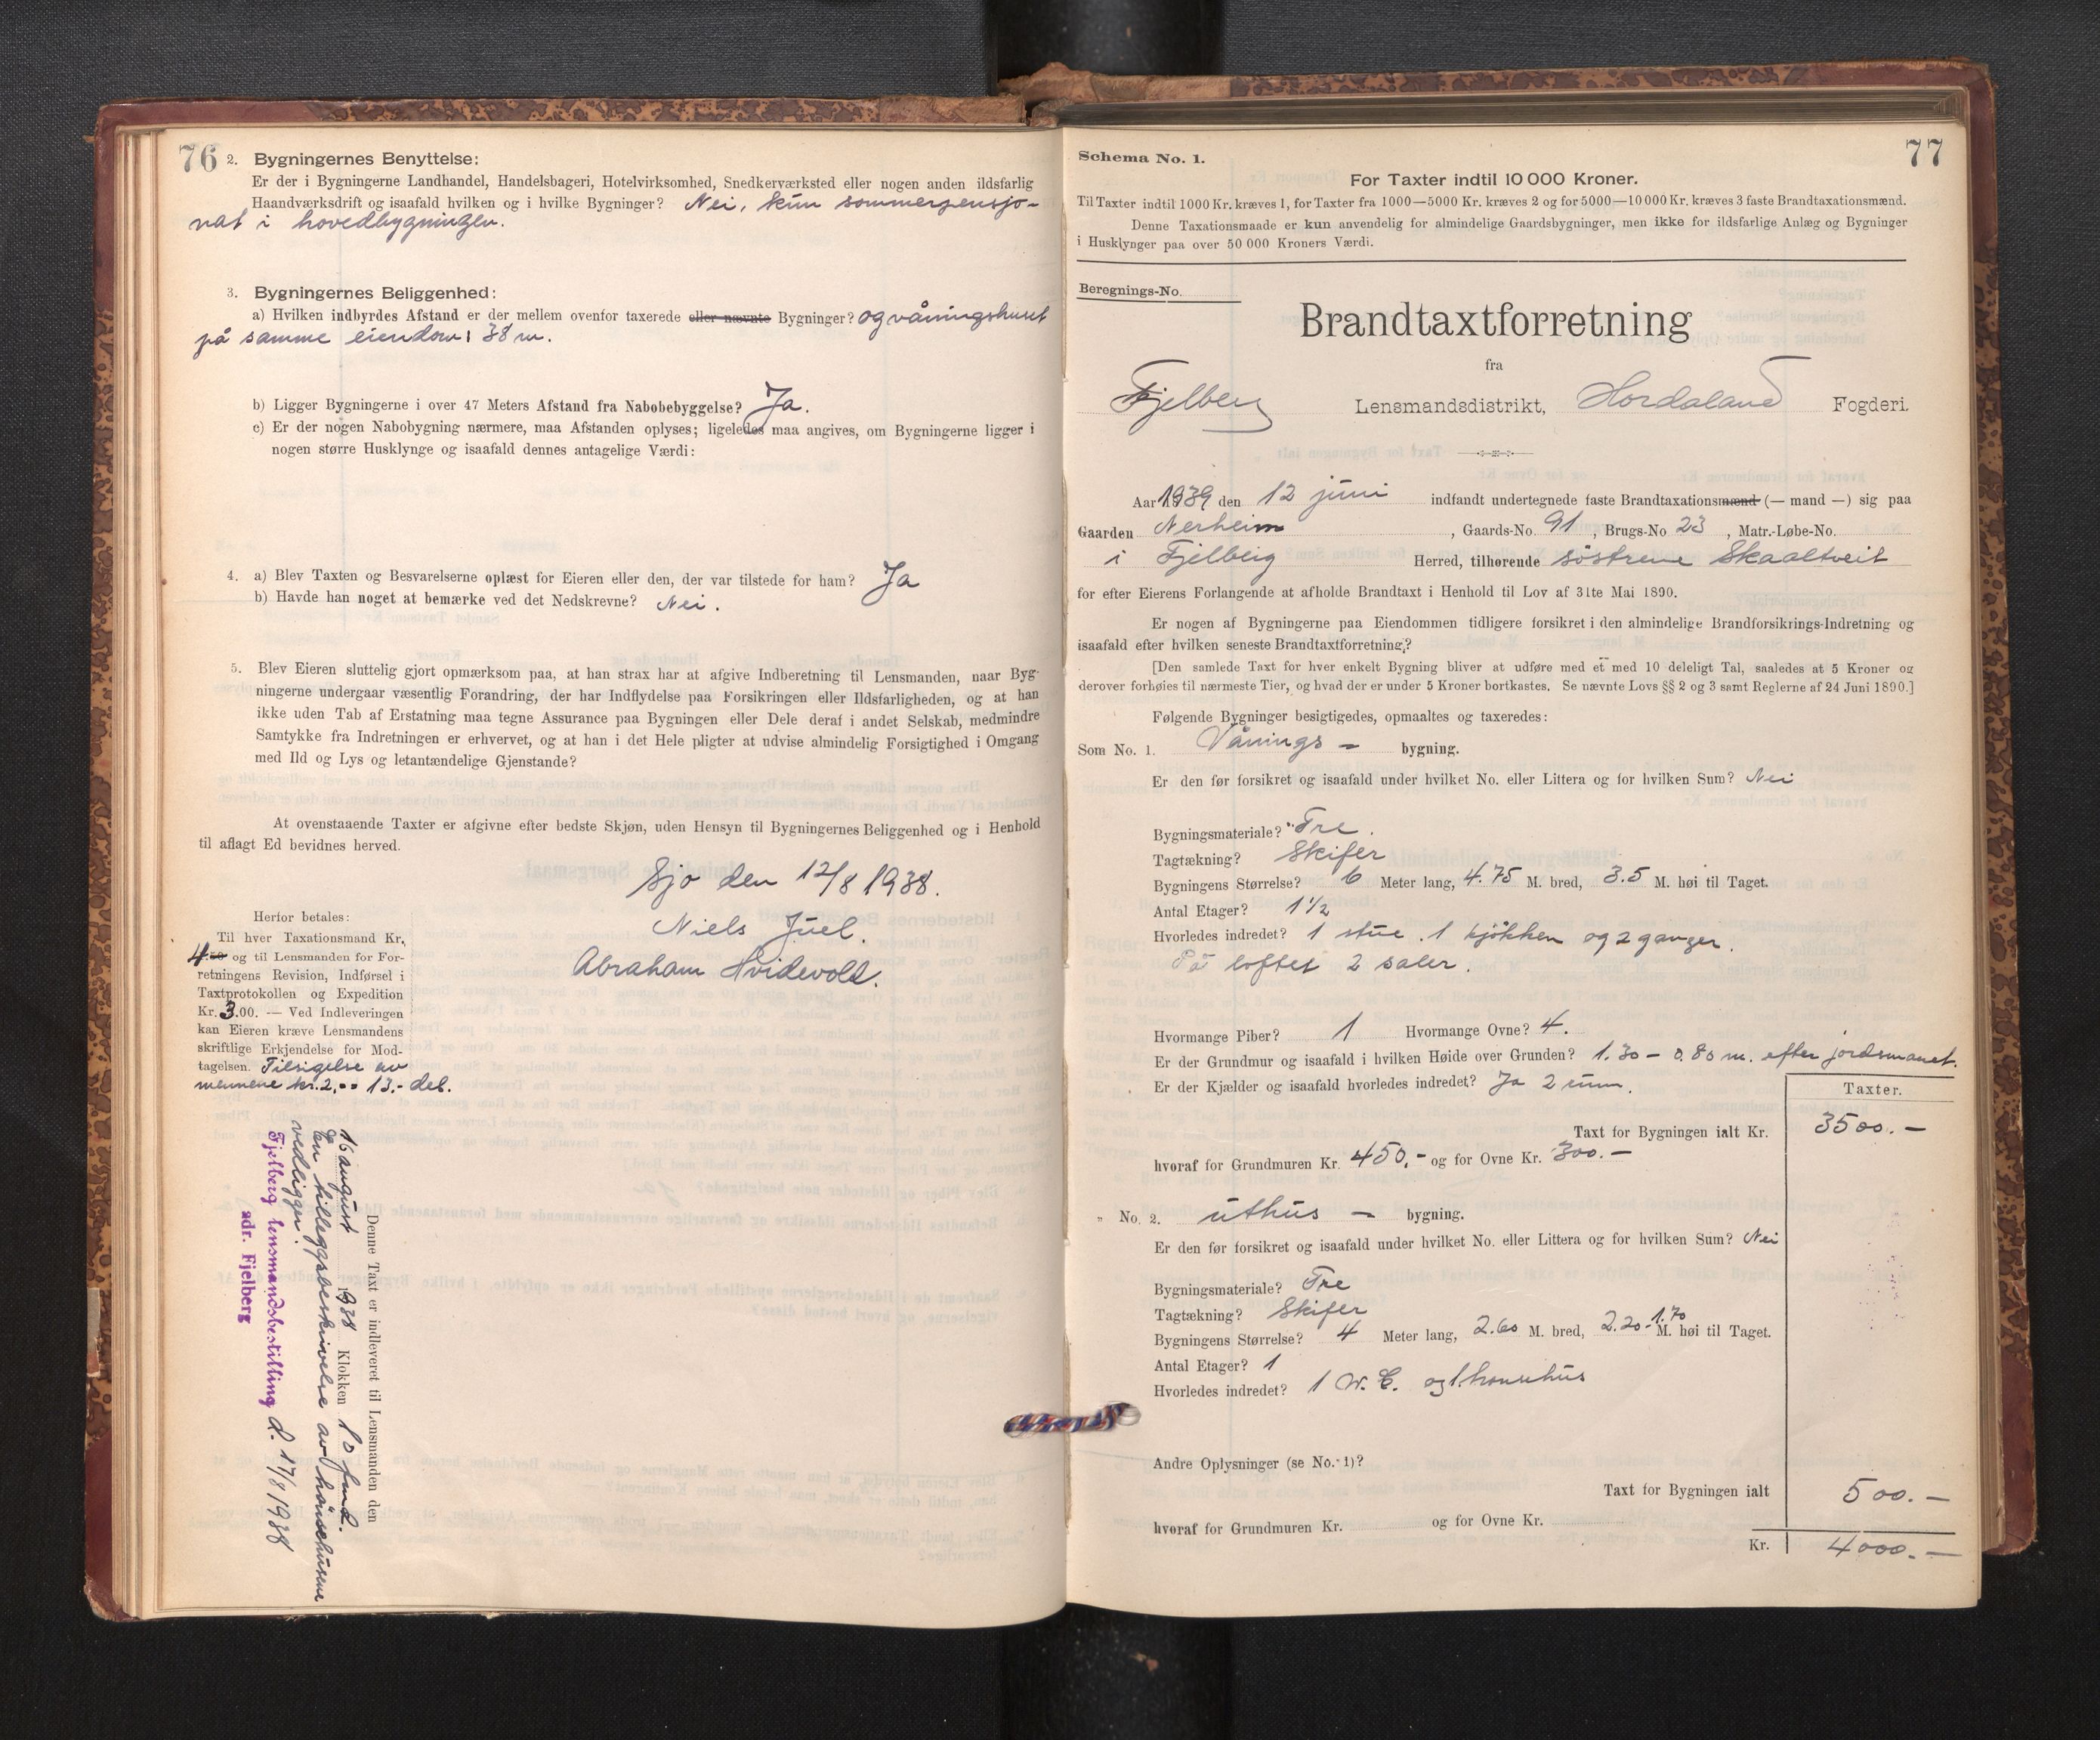 76
2. Bygningernes Benyttelse:
Er der i Bygningerne Landhandel, Handelsbageri, Hotelvirksomhed, Snedkerværksted eller nogen anden ildsfarlig
Haandværksdrift og isaafald hvilken og i hvilke Bygninger? Nei, kun sommerpensjo-
nat i hovedbygningen.
3. Bygningernes Beliggenhed:
a) Hvilken indbyrdes Afstand er der mellem ovenfor taxerede eller nævnte Bygninger? og våningshuset
på samme eiendom: 38 m.
b) Ligger Bygningerne i over 47 Meters Afstand fra Nabobebyggelse? Ja.
c) Er der nogen Nabobygning nærmere, maa Afstanden oplyses; ligeledes maa angives, om Bygningerne ligger i
nogen større Husklynge og isaafald dennes antagelige Værdi:
4. a) Blev Taxten og Besvarelserne oplæst for Eieren eller den, der var tilstede for ham? Ja
b) Havde han noget at bemærke ved det Nedskrevne? Nei.
5. Blev Eieren sluttelig gjort opmærksom paa, at han strax har at afgive Indberetning til Lensmanden, naar Byg-
ningerne undergaar væsentlig Forandring, der har Indflydelse paa Forsikringen eller Ildsfarligheden, og at han
ikke uden Tab af Erstatning maa tegne Assurance paa Bygningen eller Dele deraf i andet Selskab, medmindre
Samtykke fra Indretningen er erhvervet, og at han i det Hele pligter at udvise almindelig Forsigtighed i Omgang
med Ild og Lys og letantændelige Gjenstande?
At ovenstaaende Taxter er afgivne efter bedste Skjøn, uden Hensyn til Bygningernes Beliggenhed og i Henhold
til aflagt Ed bevidnes herved.
Sjo den 12/8 1938.
Niels Juel.
Abraham Hvidevold.
Herfor betales:
Til hver Taxationsmand Kr.
4.50 og til Lensmanden for For-
retningens Revision, Indførsel i
Taxtprotokollen og Expedition
Kr. 3.00. — Ved Indleveringen
kan Eieren kræve Lensmandens
skriftlige Erkjendelse for Mod-
tagelsen. Tilsigelse av
mennene kr. 2.00 13.- det.
Denne Taxt er indleveret til Lensmanden den
16 august 1938 Klokken 10 fmd.
En tilleggsbeskrivelse av hönsehusene
vedligger.
Fjelberg lensmandsbestilling d. 17/8 1938
adr. Fjelberg
77
Schema No. 1.
For Taxter indtil 10 000 Kroner.
Til Taxter indtil 1000 Kr. kræves 1, for Taxter fra 1000—5000 Kr. kræves 2 og for 5000—10 000 Kr. kræves 3 faste Brandtaxationsmænd.
Denne Taxationsmaade er kun anvendelig for almindelige Gaardsbygninger, men ikke for ildsfarlige Anlæg og Bygninger
i Husklynger paa over 50 000 Kroners Værdi.
Beregnings-No.
Brandtaxtforretning
fra
Fjelberg Lensmandsdistrikt, Hordaland Fogderi.
Aar 1939 den 12 juni indfandt undertegnede faste Brandtaxationsmænd (— mand —) sig paa
Gaarden Nerheim, Gaards-No. 91, Brugs-No 23, Matr.-Løbe-No.
i Fjelberg Herred, tilhørende söstrene Skaaltveit
for efter Eierens Forlangende at afholde Brandtaxt i Henhold til Lov af 31te Mai 1890.
Er nogen af Bygningerne paa Eiendommen tidligere forsikret i den almindelige Brandforsikrings-Indretning og
isaafald efter hvilken seneste Brandtaxtforretning?
[Den samlede Taxt for hver enkelt Bygning bliver at udføre med et med 10 deleligt Tal, saaledes at 5 Kroner og
derover forhøies til nærmeste Tier, og hvad der er under 5 Kroner bortkastes. Se nævnte Lovs §§ 2 og 3 samt Reglerne af 24 Juni 1890.]
Følgende Bygninger besigtigedes, opmaaltes og taxeredes:
Som No. 1. Vånings - bygning.
Er den før forsikret og isaafald under hvilket No. eller Littera og for hvilken Sum? Nei
Bygningsmateriale? Tre.
Tagtækning? Skifer
Bygningens Størrelse? 6 Meter lang, 4.75 M. bred, 3.5 M. høi til Taget.
Antal Etager? 1 1/2
Hvorledes indredet? 1 stue. 1 kjökken og 2 ganger.
På loftet 2 saler.
Hvormange Piber? 1 Hvormange Ovne? 4.
Er der Grundmur og isaafald i hvilken Høide over Grunden? 1.30 - 0.80 m. efter jordsmonet.
Er der Kjælder og isaafald hvorledes indredet? Ja 2 rum.
Taxter.
Taxt for Bygningen ialt Kr. 3500.-
hvoraf for Grundmuren Kr. 450.- og for Ovne Kr. 300.-
" No. 2. uthus - bygning.
Er den før forsikret og isaafald under hvilket No. eller Littera og for hvilken Sum? Nei
Bygningsmateriale? Tre
Tagtækning? Skifer
Bygningens Størrelse? 4 Meter lang, 2.60 M. bred, 2.20-1.70 M. høi til Taget.
Antal Etager? 1
Hvorledes indredet? 1 W.C. og 1 hönsehus
Andre Oplysninger (se No. 1)?
Taxt for Bygningen ialt 500.-
hvoraf for Grundmuren Kr. og for Ovne Kr.
Kr. 4000.-